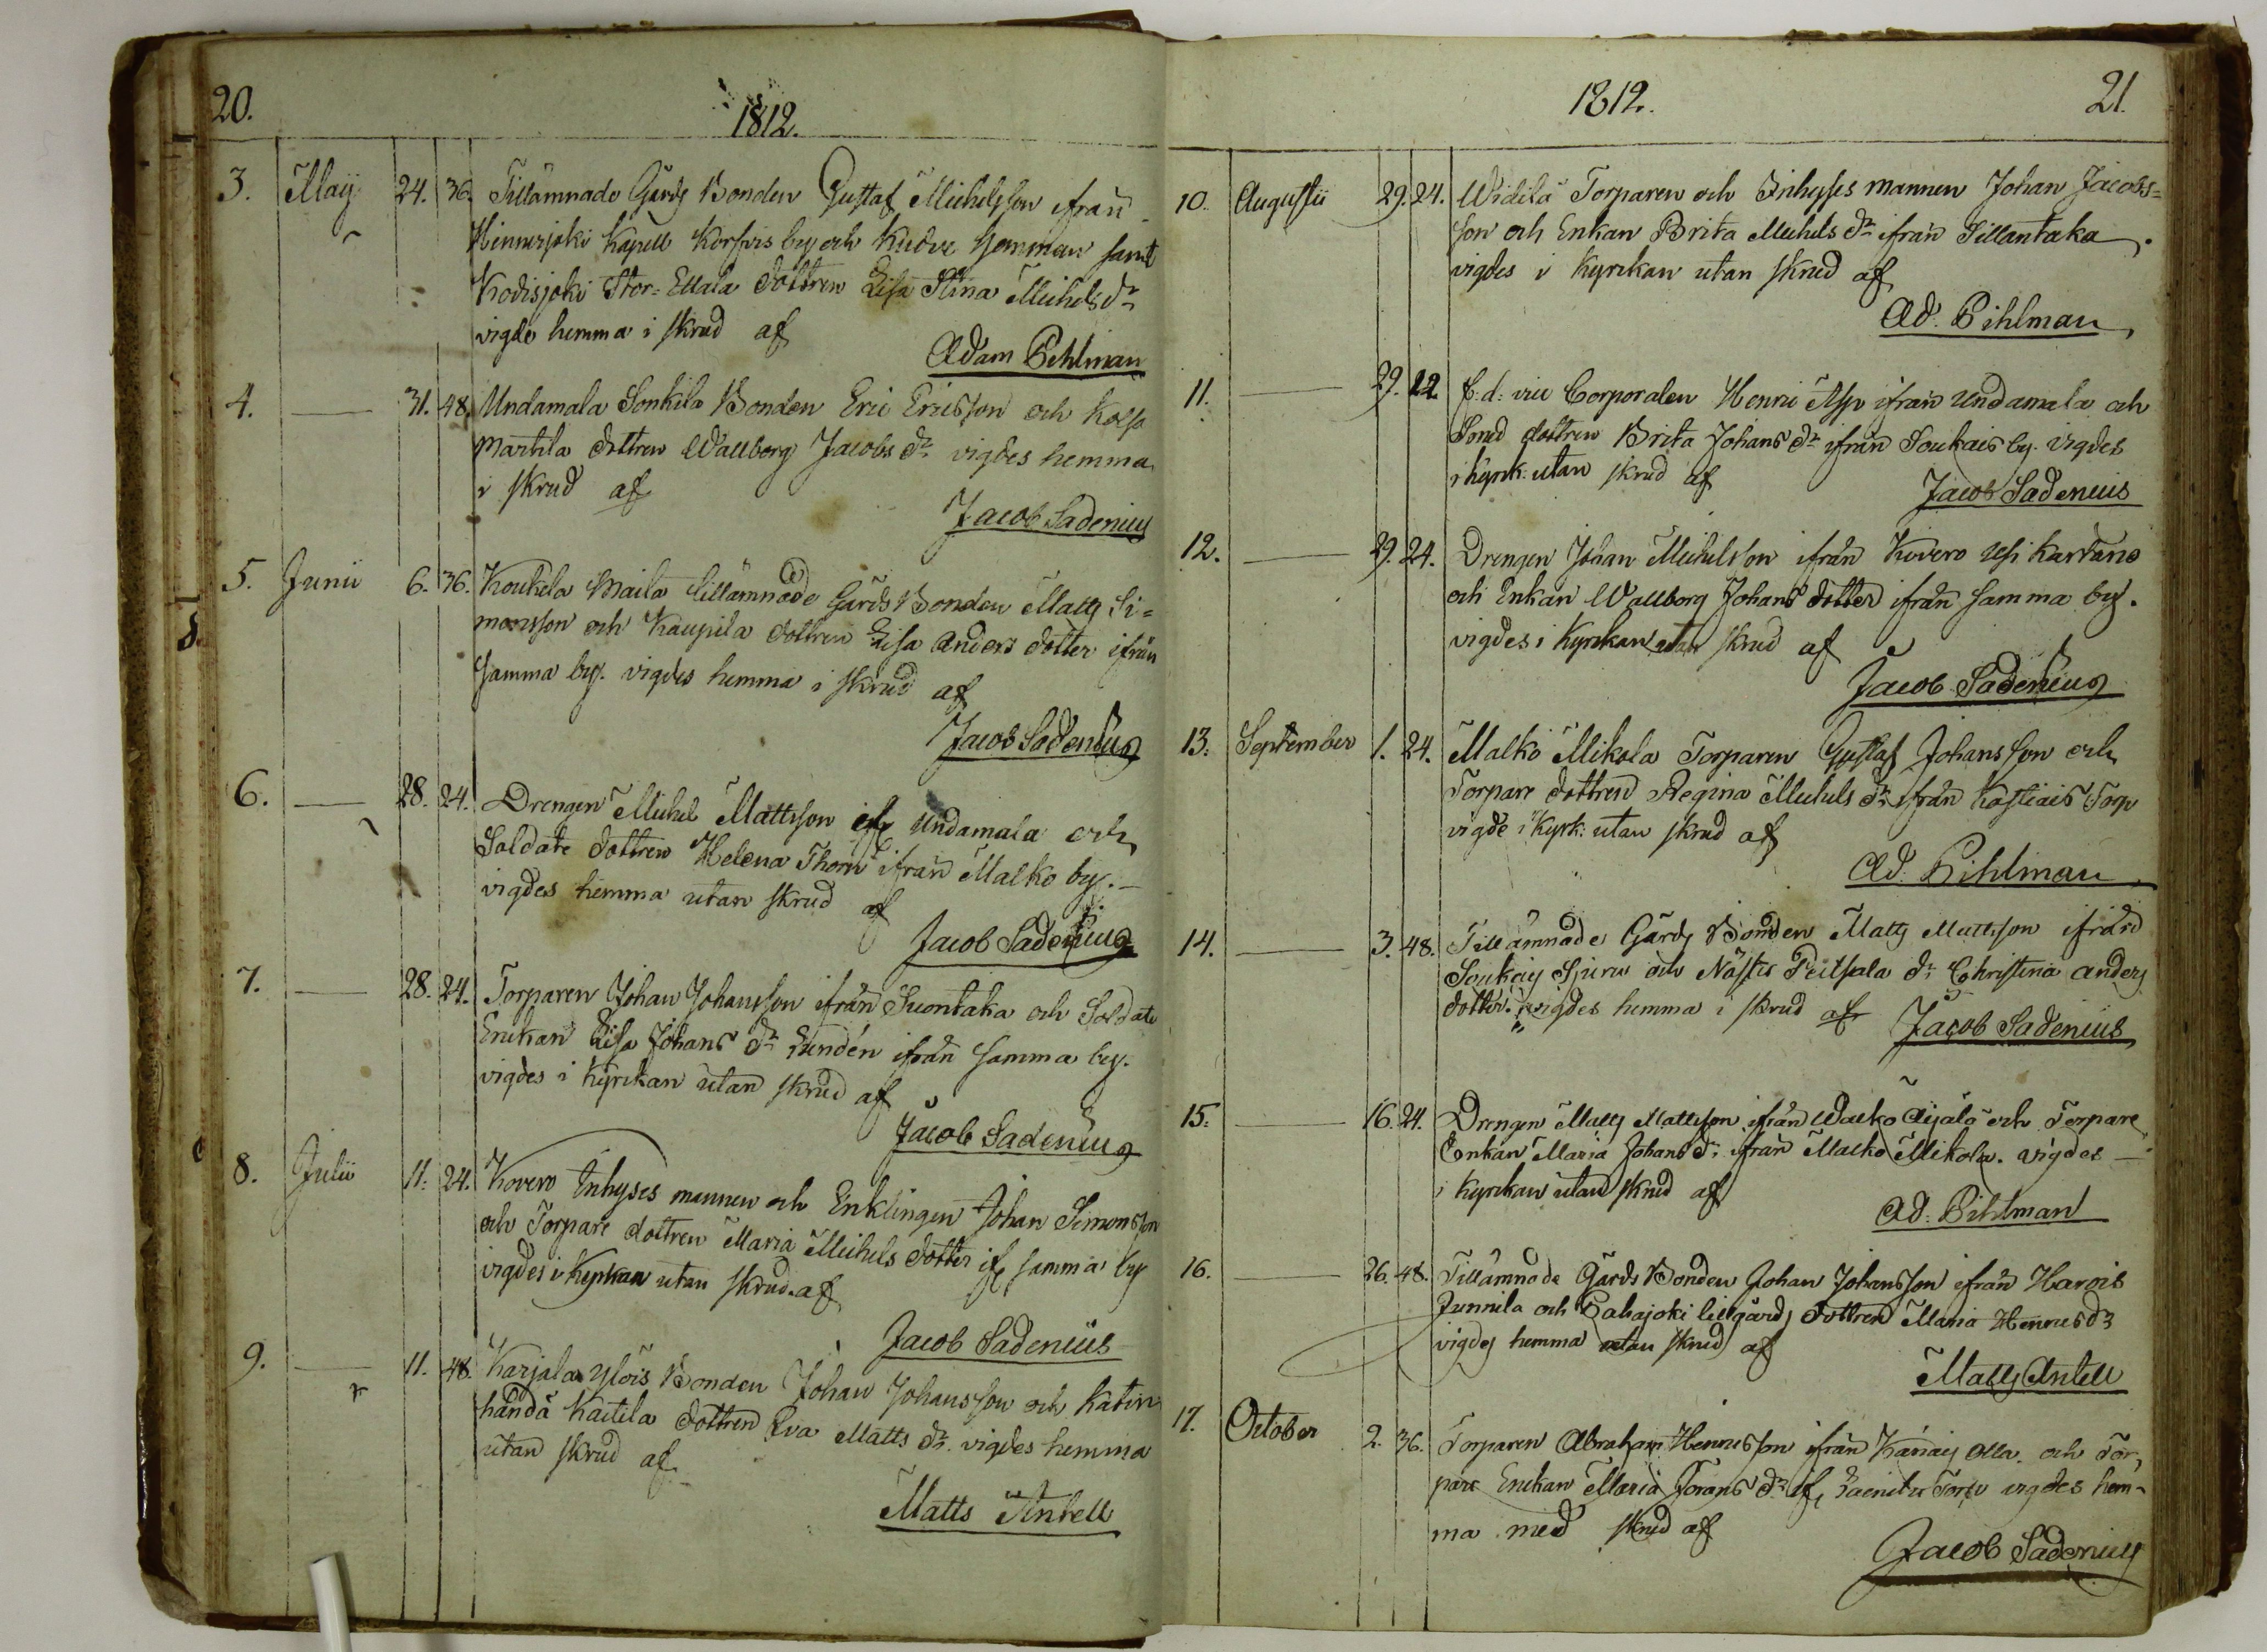 20.
1812.
3. Maji 24. 36. Tillämnade Gårds Bonden Gustaf Michelsson ifrån
Hinnerjoki Kapell Korfois by och
samt
Kodisjoki Stor-Ellala dottren Lisa Stina Michels dr
vigde hemma i skrud af
Adam Pihlman
4. — 31. 48. Undamala Sonkila Bonden Eric Ericsson och Kolfo
Martila dottren Wallborg Jacobs dr vigdes hemma
i skrud af
Jacob Sadenius
5. Junii 6. 36. Koukela Maila tillämnade Gårds Bonden Matts Si=
monsson och Kaupila dottren Lisa Anders dotter ifrån
samma by. vigdes hemma i skrud af
Jacob Sadenius
6. — 28. 24. Drengen Michel Mattsson if. Undamala och
Soldate dottren Helena Thorn ifrån Malko by. —
vigdes hemma utan skrud af
Jacob Sadenius
7. — 28. 24. Torparen Johan Johansson ifrån Suontaka och Soldate
Enckan Lisa Johans dr Lundén ifrån samma by.
vigdes i Kyrckan utan skrud af
Jacob Sadenius
8. Julii 11. 24. Kovero Inhyses mannen och Enklingen Johan Simonsson
och Torpare dottren Maria Michels dotter if. samma by
vigdes i Kyrkan utan skrud af
Jacob Sadenius
9. — 11. 48. Karjala Ylöis Bonden Johan Johansson och Katin
händä Kaitila dottren Eva Matts dr. vigdes hemma
utan skrud af
Matts Antell
1812.
21.
10. Augustii 29. 24. Widilä Torparen och Inhyses mannen Johan Jacobs=
son och Enkan Brita Michels dr ifrån Sillantaka.
vigdes i Kyrckan utan skrud af
Ad. Pihlman
11. — 29. 22. f: d: vice Corporalen Henric Asp ifrån Undamala och
dottren Brita Johans dr ifrån Soukais by. vigdes
i kyrk: utan skrud af
Jacob Sadenius
12. — 29. 24. Drengen Johan Michelsson ifrån Kovero Usi Kartano
och Enkan Wallborg Johans dotter ifrån samma by.
vigdes i Kyrckan utan skrud af
Jacob Sadenius
13. September 1. 24. Malko Mikola Torparen Gustaf Johansson och
Torpare dottren Regina Michels dr ifrån Kastiais Torp
vigde i Kyrk: utan skrud af
Ad. Pihlman
14. — 3. 48. Tillämnade Gårds Bonden Matts Mattsson ifrån
Soukais Sjuru och Nästis Peltsala dr. Christina Anders
dotter. vigdes hemma i skrud af Jacob Sadenius
15. — 16. 24. Drengen Matts Mattsson ifrån Walko Äijälä och Torpare
Enkan Maria Johans dr. ifrån Malko Mikola. vigdes —
i Kyrckan utan skrud af
Ad. Pihlman
16. — 26. 48. Tillämnade Gårds Bonden Johan Johansson ifrån Harois
Junnila och Pahajoki lillgårds dottren Maria Henricsdr
vigdes hemma utan skrud af
Matts Antell
17. October 2. 36. Torparen Abraham Henricsson ifrån Känäis Olla och Tor-
pare Enckan Maria Jörans dr if. Torp vigdes hem-
ma med skrud af
Jacob Sadenius